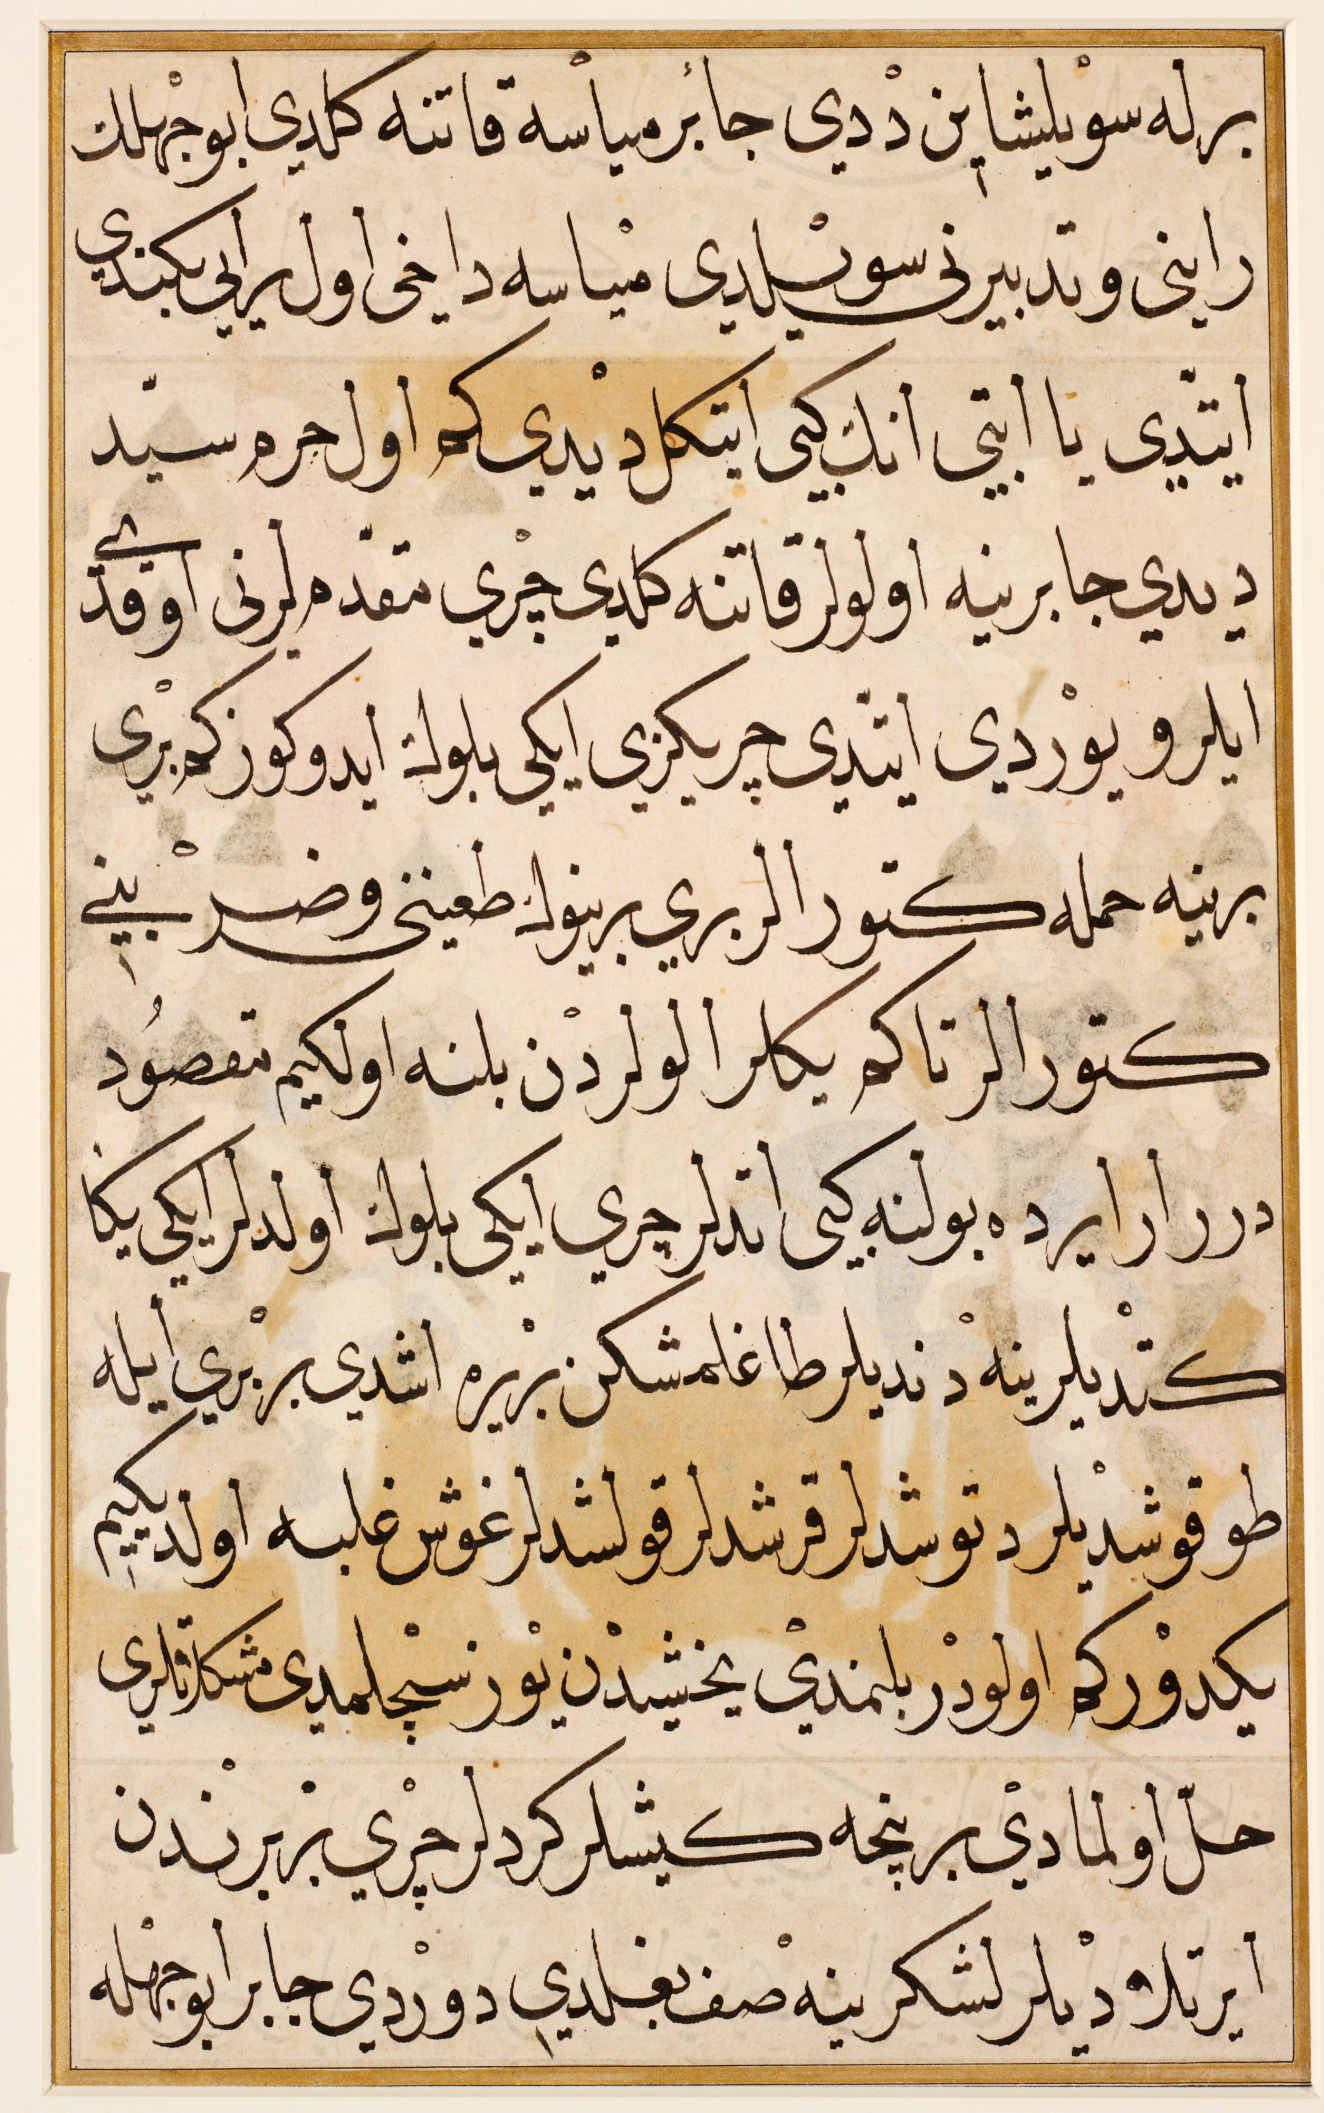 برله سویلیشاین ددی جابر میاسه قاتنه کلدی ابوجهلك
راینی و تدبیرنی سویلدی میاسه داخی اول یرایی بکندی
ایتدی یا ابتی انك کبی ایتکل دیدی کم اول حرم سید
دیدی جابر ینه اولولر قاتنه کلدی چری مقدم لرنی اوقدی
ایلرو یوردی ایتدی چریکزی ایکی بلوك ایدوکوز کم بری
برینه حمله کتورالر بری برینوك طعیننی و ضربینی
کتورالر تا کم یکلر الولردن بلنه اولکیم مقصود
درر ارایرده بولنه کبی اتدلر چری ایکی بلوك اولدلر ایکی یکا
کتدیلر ینه دندیلر طاغلمشکن بریره اشدی بربری ایله
طوقوشدیلر دتوشدلر قرشدلر قولشدلر غوش غلبه اولدیکیم
یکدورکم اولودر بلنمدی یخشیدن یوز سچلمدی مشکلاتلری
حل اولمادی برنجه کیشلر کردلر چری بربرندن
ایرتلادیلر لشکر ینه صف بغلدی دوردی جابر ابوجهله